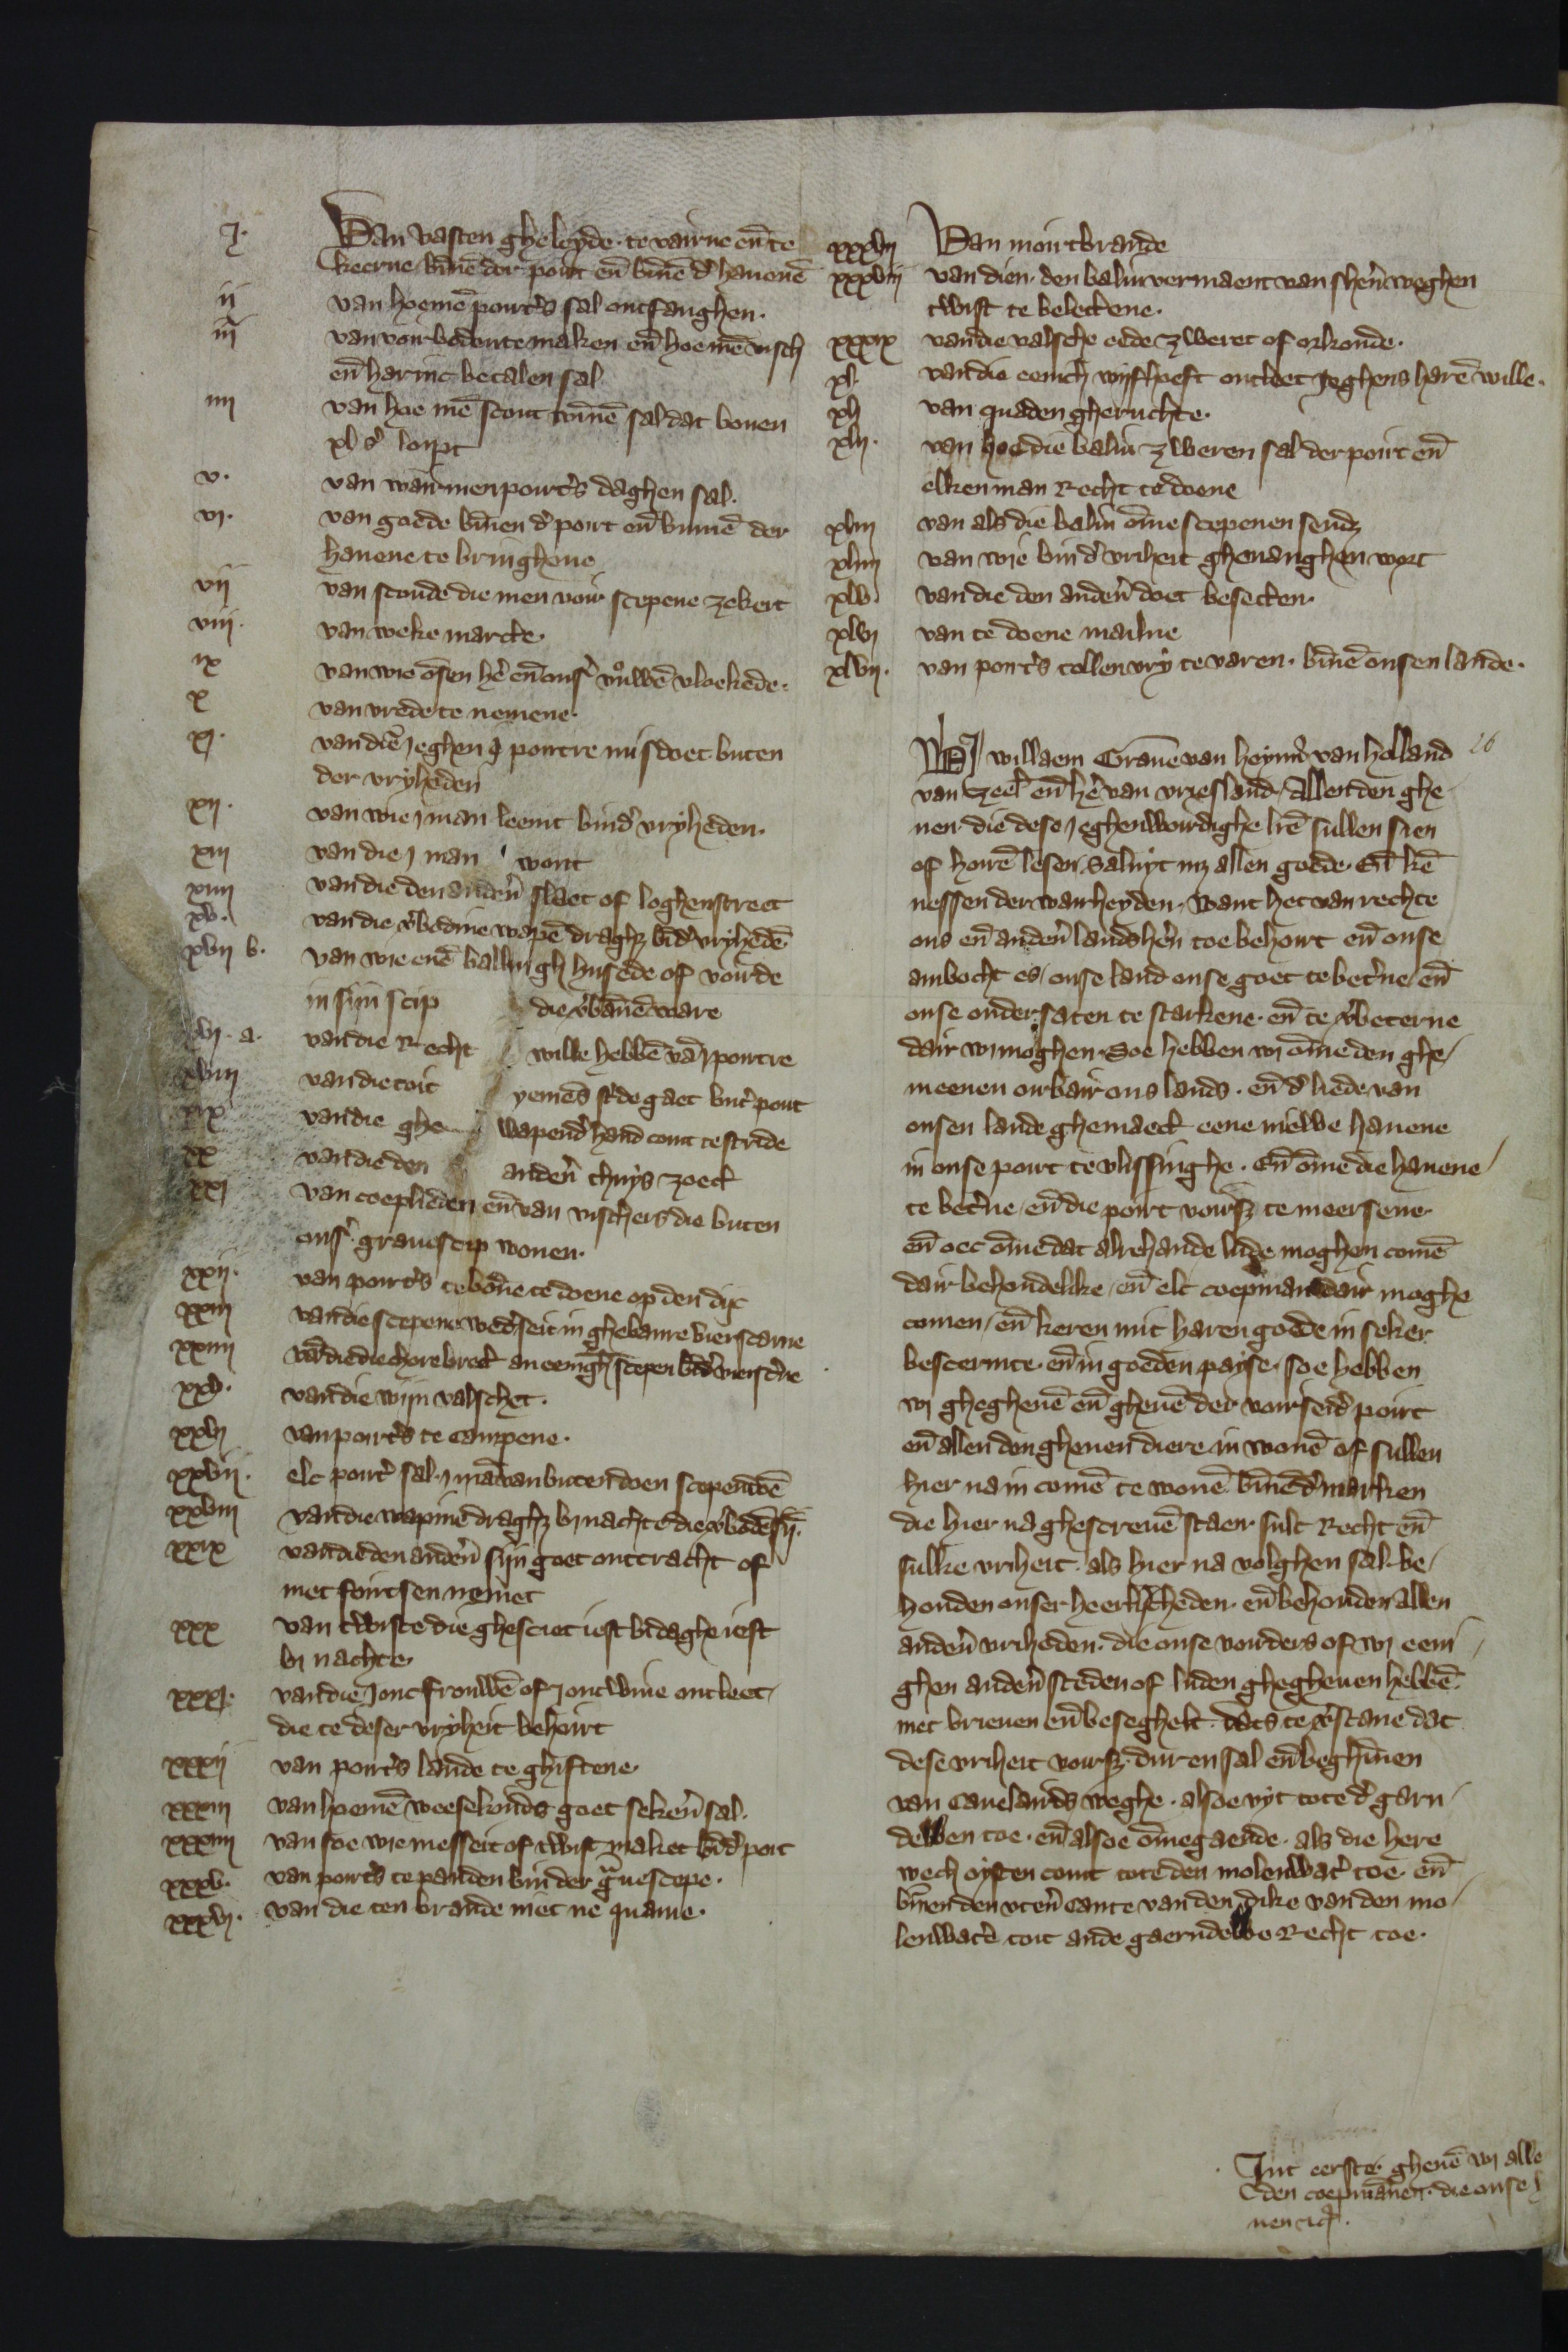 j. Van vasten gheleyde. te vairne en̄ te
keerne / bīnē der poirt en̄ binē d' hauenē
ij van hoemē poirt's sal ontfanghen.
iij van voirbodbute maken en̄ hoe mē visch
en̄ harinc betalen sal
iiij van hoe mē scout wīnē sal dat bouen
xl s' loipt
v. van wan̄ men poirt's daghen sal.
vi. van goede bīnen d' poirt en̄ binnē der
hauene te bringhene
vij van sconde die men voir scepene zekert
viij. van weke marcte.
ix van wie ōsen he' en̄ ons' vrůwē vloekede.
x van vrede te nemene.
xj. van diē jeghen j poirtre misdoet buten
der vryheden
xij. van wie j man leemt bind' vryheden.
xiij van die j man wont
xiiij van die den anden' slaet of loghenstreet
xv. van die v'bodine wapē draghz bīd' vryhedē
xvij b. van wie enē ballingh husede of voirde
in sijn scip die v'banē ware
xvj. a. van die Recht wille hebbē vā j poirtre
xviij van die toit yemēs st'de gaet but' poirt
xix van die ghe wapend' hand comt te stride
xx van die den anden' thuys zoect
xxj van coeplieden en̄ van vischers die buten
ons' grauescip wonen.
xxij. van poirt's te bōne te doene op den dijc
xxiij van die scepene wed'seit in ghebanre vierscarne
xxiiij van die die chore brect an eenigh scepen bīd' viersc'ne
xxv. van die wijn valschet.
xxvj van poirt's te campene.
xxvij. elc poirt' sal j man van buten doen scependē
xxviij van die wapinē draghz bi nachte die v'bodē sij.
xxix van die den anden' sijn goet onttracht of
met foirtsen nemet
xxx van twiste die ghesciet iest bi daghe iest
bi nachte.
xxxj. van die joncfrouwē of jonc wiue ontleet
die te deser vryheit behoirt
xxxij van poirt's lande te ghiftene.
xxxiij van hoemē weesekinds goet seken' sal.
xxxiiij van soe wie messeit of twist maket bīd' poirt
xxxv. van poirt's te panden binder g'uescepe.
xxxvj. van die ten brande niet ne quame.
xxxvij Van moirtbrande
xxxviij van dien. den baliu vermaent van shen' weghen
twist te beleckene.
xxxix van die valsche eede zweret of orkonde.
xl. van die eenich wijf heft ontleet jeghens harē wille.
xlj van quaden gheruchte.
xlij. van hoe die baliu zweren sal der poirt en̄
elken man Recht te doene
xliij van als die baliu ōme scepenen sendz
xliiij van wie bind' vriheit gheuanghen wort
xlv. van die den anden' doet besetten.
xlvj van te doene mailne
xlvij. van poirt's tollen vry te varen. bīnē onsen lande.
Wj willaem Graue van heyn' van holland 26
van zeel' en̄ he' van vriesland / Allen den ghe
nen. die dese jeghenwoirdighe l're sullen sien
of hoirē lesen. Saluyt mz allen goede En̄ kē
nessen der wairheyden. Want het van rechte
ons en̄ anden' lands hen' toe behoirt en̄ onse
ambocht es / onse land onse goet te bet'ne / en̄
onse ondersaten te starkene. en̄ te v'beterne
dair wi moghen. Soe hebben wi ōme den ghe/
meenen oirbair ons lands. en̄ d' liede van
onsen lande ghemaect eene niewe hauene
in onse poirt te vlissinghe. En̄ ōme die hauene
te bet'ne / en̄ die poirt voirsz te meersene
en̄ oec ōme dat alrehande lude moghen comē
dair behoudelike / en̄ elc coepman dair moghe
comen / en̄ keren mit haren goede in seker
bescermte. en̄ in goeden payse. soe hebben
wi ghegheuē en̄ gheuē der voirseid' poirt
en̄ allen den ghenen diere in wonē of sullen
hier na in comē te wonē. bīnē d' marken
die hier na ghescreuē staen. sulc Recht en̄
sulke vriheit. als hier na volghen sal. be/
houden onser heerlicheden. en̄ behouden allen
anden' vriheden. die onse vouders of wi eeni/
ghen anden' steden of luden ghegheuen hebbē
met brieuen en̄ beseghelt. dats te v'stane dat
dese vriheit voirsz. duren sal en̄ beghīnen
van Canelands weghe. alsoe vyt tote d' garn/
deluen toe. en̄ alsoe ōmegaende. als die here
wech oysten comt tote den molenwat' toe. en̄
bīnen den vten' cante van den dike van den mo/
lenwat' toit ande gaerndelue Recht toe.
Int eerste. gheuē wi alle
den coepmānen. die onse h
uen ...